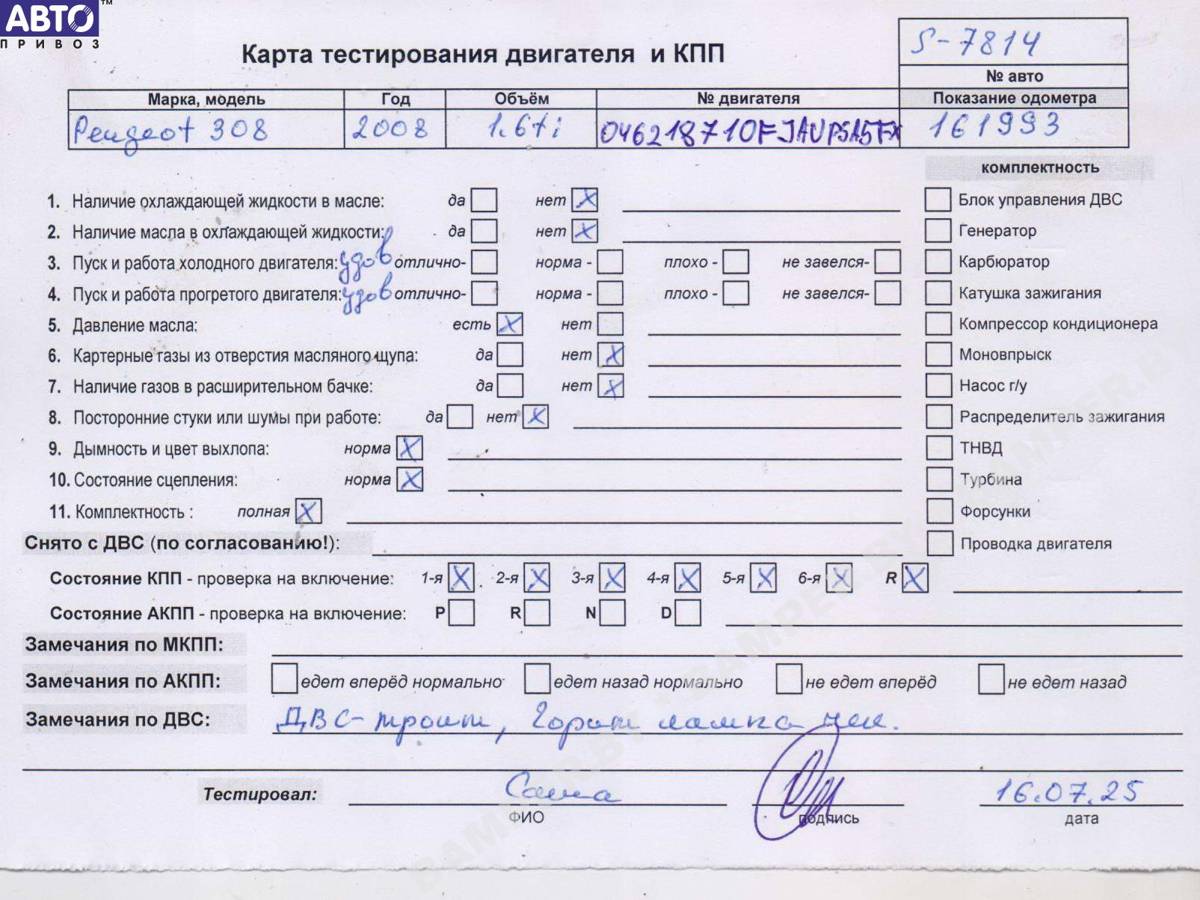 АВТО™
ПРИВОЗ
Карта тестирования двигателя и КПП
S-7814
№ авто
Марка, модель Год Объём № двигателя Показание одометра
Peugeot 308 2008 1.6ti 04621871OFJAUPSA5FX 161993
комплектность
1. Наличие охлаждающей жидкости в масле: да нет X
Блок управления ДВС
2. Наличие масла в охлаждающей жидкости: да нет X
Генератор
3. Пуск и работа холодного двигателя: удов отлично- норма - плохо - не завелся-
Карбюратор
4. Пуск и работа прогретого двигателя: удов отлично- норма - плохо - не завелся-
Катушка зажигания
5. Давление масла: есть X нет
Компрессор кондиционера
6. Картерные газы из отверстия масляного щупа: да нет X
Моновпрыск
7. Наличие газов в расширительном бачке: да нет X
Насос г/у
8. Посторонние стуки или шумы при работе: да нет X
Распределитель зажигания
9. Дымность и цвет выхлопа: норма X
ТНВД
10. Состояние сцепления: норма X
Турбина
11. Комплектность : полная X
Форсунки
Снято с ДВС (по согласованию!):
Проводка двигателя
Состояние КПП - проверка на включение: 1-я X 2-я X 3-я X 4-я X 5-я X 6-я X R X
Состояние АКПП - проверка на включение: P R N D
Замечания по МКПП:
Замечания по АКПП: едет вперёд нормально едет назад нормально не едет вперёд не едет назад
Замечания по ДВС: ДВС-троит, Горит лампка чек.
Тестировал: Саша 16.07.25
ФИО подпись дата
SAMPER.BY SAMPER.BY SAMPER.BY